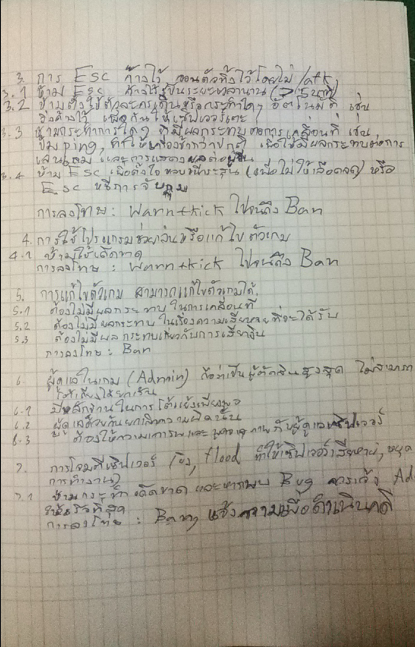 3. การ Esc ค้างไว้ จอนตัวทิ้งไว้โดยไม่ /afk
3.1 ห้าม Esc ค้างไว้เป็นระยะเวลานาน (> 5 นาที)
3.2 ห้ามตั้งให้ตัวละครเดินหรือกระทำใดๆ อัตโนมัติ เช่น
เพื่อกันไม่ให้เซิฟเวอร์เตะ
3.3 ห้ามกระทำการใดๆ ที่มีผลกระทบต่อการเคลื่อนที่ เช่น
ปั๊ม ping, ทำให้เครื่องช้ากว่าปกติ เพื่อให้มีผลกระทบต่อการ
เล่นเกม และการแสดงผลต่อผู้อื่น
3.4 ห้าม Esc เพื่อตั้งใจหลบหนีกระสุน (เพื่อไม่ให้เลือดลด) หรือ
Esc หนีการจับกุม
การลงโทษ : Warn+kick ไปจนถึง Ban
4. การใช้โปรแกรมช่วยเล่นหรือแก้ไขตัวเกม
4.1 ห้ามใช้เด็ดขาด
การลงโทษ : Warn+kick ไปจนถึง Ban
5. การแก้ไขตัวเกม สามารถแก้ไขตัวเกมได้
5.1 ต้องไม่มีผลกระทบในการเคลื่อนที่
5.2 ต้องไม่มีผลกระทบในเรื่องความเสียหายที่จะได้รับ
5.3 ต้องไม่มีผลกระทบเกี่ยวกับการเสียเงิน
การลงโทษ : Ban
6. ผู้ดูแลในเกม (Admin) ถือว่าเป็นผู้ตัดสินสูงสุด ไม่สามารถ
โต้เถียงได้ ยกเว้น
6.1 มีหลักฐานในการโต้แย้งเพียงพอ
6.2 ผู้ดูแล
6.3 ต้องให้ความเคารพและ ผู้ดูแลเซิฟเวอร์
7. การโจมตีเซิฟเวอร์ ยิง, flood ทำให้เซิฟเวอร์เสียหาย, หยุด
การทำงาน
7.1 ห้ามกระทำเด็ดขาด และหากพบ Bug ควรแจ้ง Ad
การลงโทษ : Ban, แจ้งความเพื่อดำเนินคดี